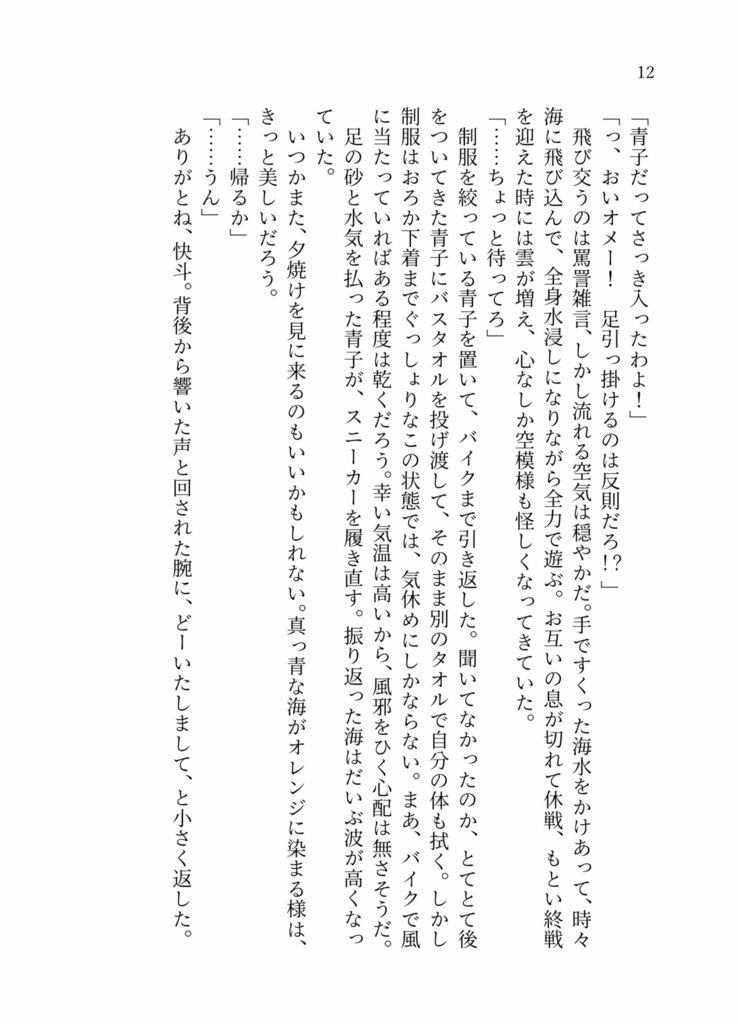 12
「青子だってさっき入ったわよ！」
「っ、おいオメー！　足引っ掛けるのは反則だろ!?」
　飛び交うのは罵詈雑言、しかし流れる空気は穏やかだ。手ですくった海水をかけあって、時々
海に飛び込んで、全身水浸しになりながら全力で遊ぶ。お互いの息が切れて休戦、もとい終戦
を迎えた時には雲が増え、心なしか空模様も怪しくなってきていた。
「……ちょっと待ってろ」
　制服を絞っている青子を置いて、バイクまで引き返した。聞いてなかったのか、とてとて後
をついてきた青子にバスタオルを投げ渡して、そのまま別のタオルで自分の体も拭く。しかし
制服はおろか下着までぐっしょりなこの状態では、気休めにしかならない。まあ、バイクで風
に当たっていればある程度は乾くだろう。幸い気温は高いから、風邪をひく心配は無さそうだ。
　足の砂と水気を払った青子が、スニーカーを履き直す。振り返った海はだいぶ波が高くなっ
ていた。
　いつかまた、夕焼けを見に来るのもいいかもしれない。真っ青な海がオレンジに染まる様は、
きっと美しいだろう。
「……帰るか」
「……うん」
　ありがとね、快斗。背後から響いた声と回された腕に、どーいたしまして、と小さく返した。